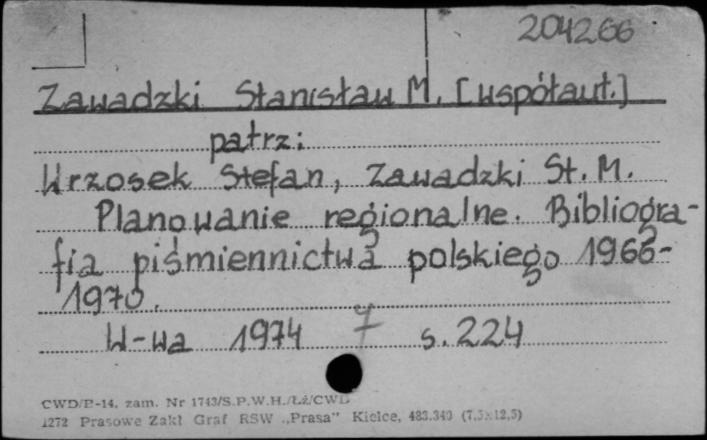 204266
Zawadzki Stanisław M. [współaut.]
patrz:
Wrzosek Stefan, Zawadzki St. M.
Planowanie regionalne. Bibliogra-
fia piśmiennictwa polskiego 1966-
1970.
W-wa 1974 7 s. 224
CWD/B-14, zam. Nr 1743/S.P.W.H./Łż/CWD
1272 Prasowe Zakł Graf RSW „Prasa" Kielce, 483.343 (7,5x12,5)